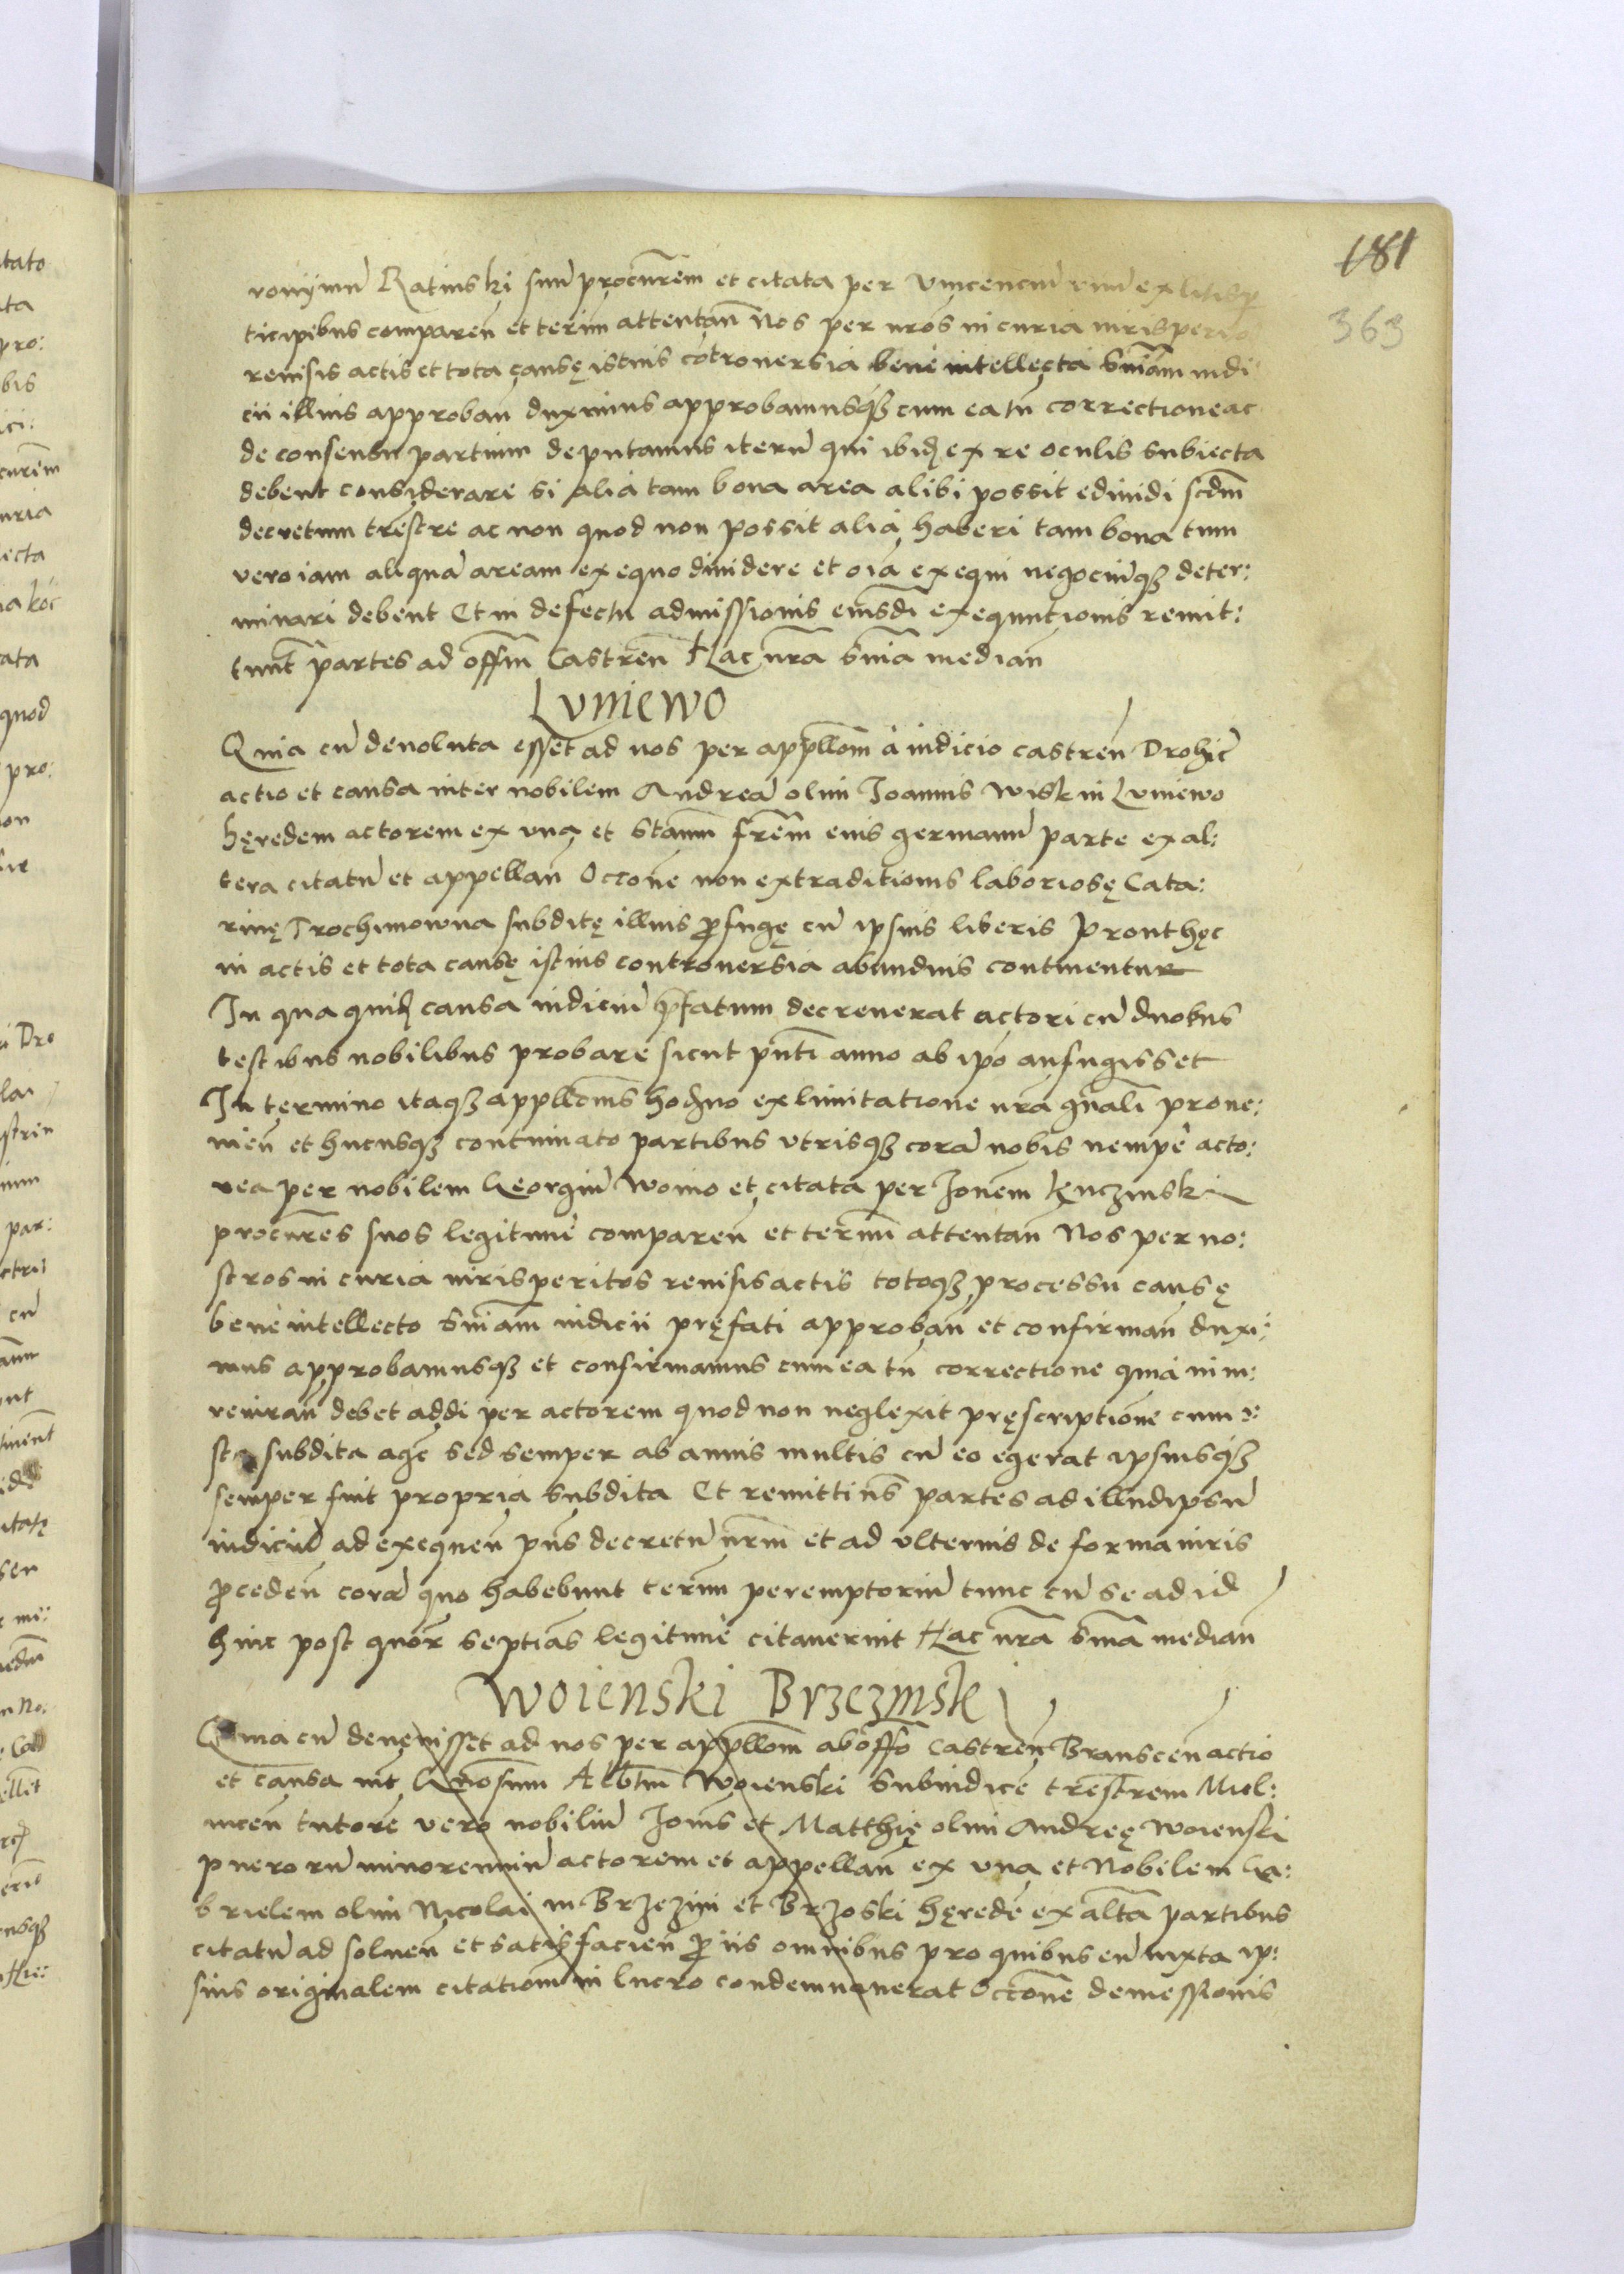 181
363
ronijmũ Ratinski suũ procurẽm et citata per Vincenciũ ex litis p̱
ticipibus compareñ et terim̃ attentañ Nos per nr̃os in curia iurisperito
reuisis actis et tota causę istius cõtrouersia benè intellecta Sniãm iudi
cii illius approbañ duximus approbamusq₃ cum ea tñ correctione ac
de consensu partium deputamus iterũ qui ibiḍ ex re oculis subiecta
debent considerare si alia tam bona area alibi possit ediuidi scdm̃
decretum trẽstre ac non quod non possit alia haberi tam bona tum
vero iam aliquã aream ex equo diuidere et oĩa exequi negociũq₃ deter:
minari debent Et in defectu admissionis eiusdĩ exequutionis remit:
tunt̃ partes ad offm̃ Castreñ Hac nr̃a Sniã median̄
Lvniewo
Quia cũ deuoluta esset ad nos per appllom̃ à iudicio castreñ Drohic̃
actio et causa inter nobilem Andreã olim Joannis Wisk in Lvniewo
hęredem actorem ex vna et Stanũ frẽm eius germanũ parte ex al:
tera citatũ et appellañ Occõne non extraditionis laboriosę Cata:
rinę Trochimowna subditę illius p̱fugę cũ ipsius liberis Prout hęc
in actis et tota causę istius controuersia abundius continentur
In qua quiḍ causa iudiciũ p̃fatum decreuerat actori cũ duobus
testibus nobilibus probare sicut pñti anno ab ip̃o aufugisset
In termino itaq₃ appllonis̃ hod̃no ex limitatione nr̃a gñali proue:
nieñ et hucusq₃ continuato partibus vtrisq₃ corã nobis nempè acto:
rea per nobilem Georgiũ Woino et citata per Jonẽm Kuczinski
procurẽs suos legitimè compareñ et termĩ attentañ Nos per no:
stros in curia iurisperitos reuisis actis totoq₃ processu causę
benè intellecto Sniãm iudicii pręfati approbañ et confirmañ duxi:
mus approbamusq₃ et confirmamus cum ea tñ correctione quia in iu:
reiurañ debet addi per actorem quod non neglexit pręscriptionẽ cum i:
sta subdita agẽ sed semper ab annis multis cũ eo egerat ipsiusq₃
semper fuit propria subdita Et remittiñs partes ad illud ipsũ
iudiciũ ad exequeñ pñs decretũ nrm̃ et ad vlterius de forma iuris
p̱cedeñ corã quo habebunt term̃ peremptoriũ tunc cũ se ad id
hinc post quor̃ septiãs legitimè citauerint Hac nr̃a Sniã median̄
Woienski Brzezinsk
Quia cũ deuenisset ad nos per appllom̃ ab offo̊ Castreñ Branscen̄ actio
et causa int̃ Gñosum Alb̃tm Woienski Subiudicẽ trẽstrem Miel:
niceñ tutorẽ vero nobiliũ Jonis̃ et Matthię olim Andreę Woienski
puerorũ minorenniũ actorem et appellañ ex vna et Nobilem Ga:
brielem olim Nicolai in Brzeziny et Brzoski hęredẽ ex alt̃a partibus
citatũ ad solueñ et satisfacieñ p̱ iis omnibus pro quibus eũ iuxta ip:
sius originalem citatiom̃ in lucro condemnauerat Occõne demessionis